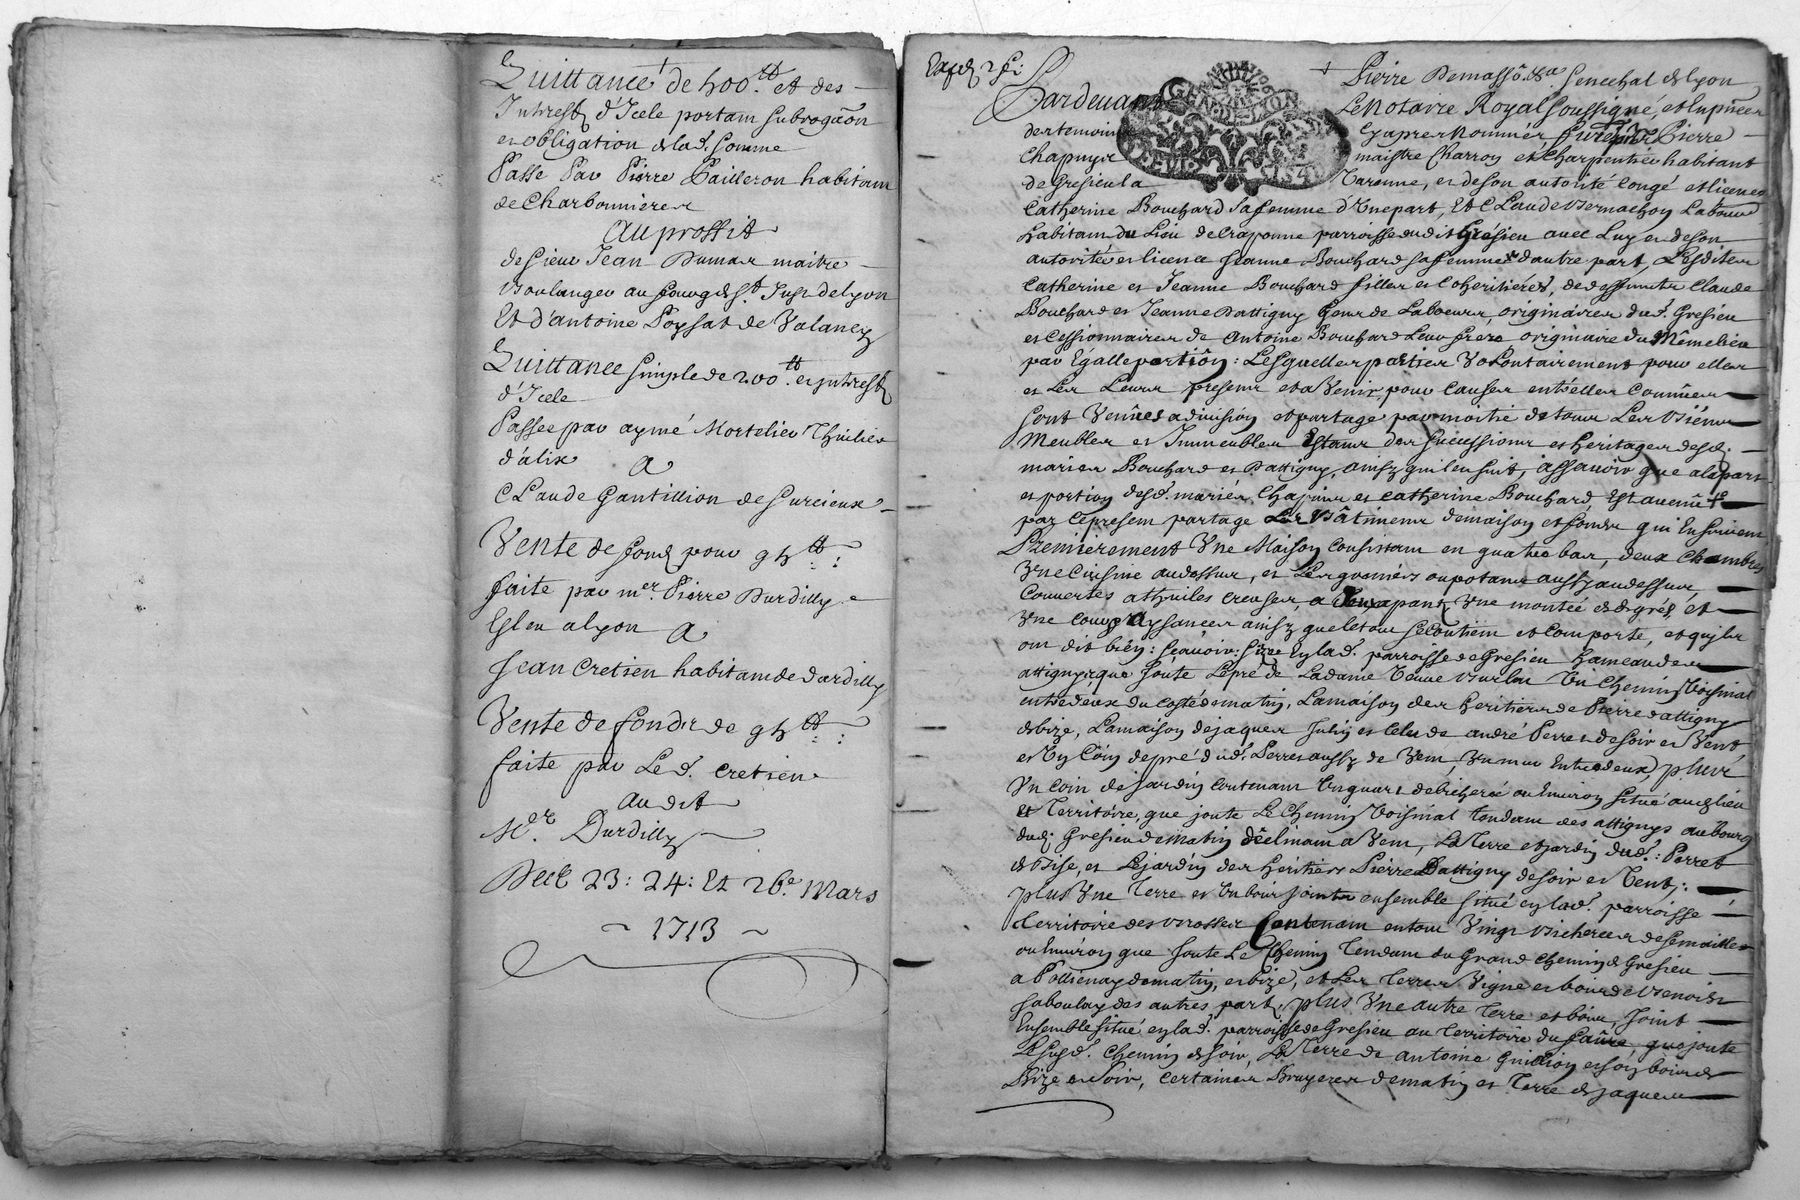 Quittance de 500.tt et des
Intrests d'Icele portant subrogãon
et obligation de lad. somme
Passé Par Pierre Pailleron habitant
de Charbonnieres
Au proffit
de sieur Jean Dumas maitre
Boulanger au fourg de St. Just de lyon
Et d'antoine Poysat de Valancy
Quittance simple de 200.tt et Intrests
d'Icele
Passée par aymé Mortelier Thuilier
d'alix a
Claude Gantillion de Surcieux
Vente de fond pour 95.tt
faite par mer Pierre Durdilly
Esleu a lyon a
Jean Cretien habitant de dardilly
Vente de fonds de 95.tt
faite par Led. Cretien
Audit
Mer. Durdilly
Du 23: 24: Et 26e Mars
~ 1713 ~
Expd
Pierre Demasso &a Senechal de lyon
Pardevant Le Notaire Royal soussigné, et en pñce
des temoins Cy apres Nommés, furent Pierre
Chapuys maistre Charron et Charpentier habitant
de Gresieu la Varenne, et de son autorité congé et licence
Catherine Bouchard sa femme d'Une part, Et Claude Vernachon Laboureur
habitant du Lieu de Craponne parroisse dudit Grésieu avec Luy et de son
autorité et licence Jeanne Bouchard sa femme d'autre part, Lesdites
Catherine et Jeanne Bouchard filles et Coheritiéres, de deffunts Claude
Bouchard et Jeanne Dattigny Gens de Labeur, originaires dud. Gresieu
et cessionnaires de Antoine Bouchard Leur frere originaire du Mêmelieu
par Egalle portiõn: Lesquelles parties Volontairement pour elles
et Les Leurs presents et a Venir, pour Causes entr'elles Connües
sont Venües a division et partage par moitié de tous Les Biens
Meubles et Immeubles Estants des sucessions et heritages desd.
mariés Bouchard et Dattigny, ainsy qui lensuit, assavoir que a la part
et portion desd. mariés Chapuys et Catherine Bouchard, Est avenu
par Ce present partage Les Bâtiments de maison et fonds qui Ensuivent
Premierement Une Maison Consistant en quatre bas, deux Chambres
Une Cuisine audessus, et Les greniers aussy audessus,
Couvertes a thuiles creuses, Une montée de degrés, et
Une Cour aysances ainsy que le tout se Contient et Comporte, et qu'ils
ont dit bien: sçavoir: Size En lad. parroisse de Gresieu hameau des
attignys que joúte Le pré de La dame Un Chemin Voisinal
entredeux du costé de matin, La maison des heritiers de Pierre dattigny
de bize, La maison de Jaques et Celle de andré Perret de soir et Vent
et Un Coin de pré dud. Perret aussy de Vent, Un mur Entredeux, plus
Un Coin de Jardin Contenant Un quart de bicherée ou Environ situé aud. lieu
et Territoire, que joute Le Chemin Voisinal tendant des attignys au bourg
dud. Gresieu de matin déclinant a Vent, La Terre et jardin dud.: Perret
de Bise, et Le jardin des heritiers Pierre Dattigny de soir et Vent:
plus Une Terre et Un bois joints ensemble situé en lad. parroisse
Territoire des Contenant en tout Vingt bicherées de semailles
ou Environ que joute Le Chemin Tendant du Grand Chemin de Gresieu
a Pollienay de matin, et bize, et Les Terres Vigne et bois de
des autres part; plus Une autre Terre et bois, Joint
Ensemble situé en lad. parroisse de Gresieu au Territoire du que joute
Le susd. Chemin de soir, La Terre de antoine et son bois de
Bize et soir, certaines Bruyeres de matin et Terre de Jaques